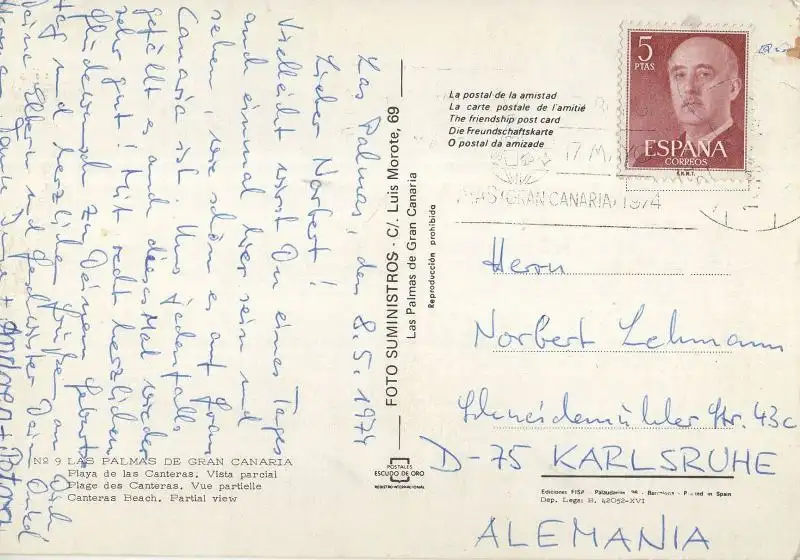 Las Palmas, den 8.5.1974
Lieber Norbert!
Vielleicht wirst Du eines Tages
auch einmal hier sein und
sehen, wie schön es auf Gran
Canaria ist. Uns jedenfalls
gefällt es auch dieses Mal wieder
sehr gut! Mit recht herzlichen
Glückwünschen zu Deinem Geburts-
tag und herzlichen Grüßen an Dich,
Deine Eltern und Geschwister Dein Onkel
Tante
Nº 9 LAS PALMAS DE GRAN CANARIA
Playa de las Canteras. Vista parcial
Plage des Canteras. Vue partielle
Canteras Beach. Partial view
FOTO SUMINISTROS - C/. Luis Morote, 69
Las Palmas de Gran Canaria
Reproducción prohibida
POSTALES
ESCUDO DE ORO
REGISTRO INTERNACIONAL
La postal de la amistad
La carte postale de l'amitié
The friendship post card
Die Freundschaftskarte
O postal da amizade
5
PTAS
ESPAÑA
CORREOS
F.N.M.T.
17 M
GRAN CANARIA) 1974
Herrn
Norbert Lehmann
Schneidemühler Str. 43c
D-75 KARLSRUHE
Ediciones FISA - Palaudarias, 26 - Barcelona - Printed in Spain
Dep. Lega: B. 42052-XVI
ALEMANIA